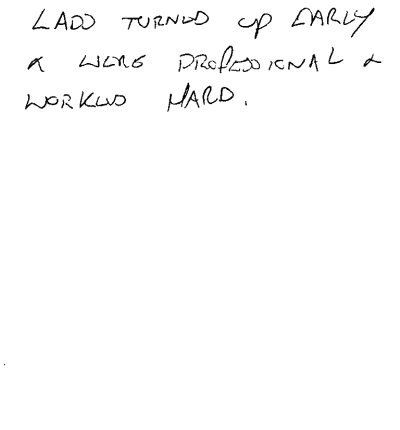 LADS TURNED UP EARLY
& WERE PROFESSIONAL &
WORKED HARD.